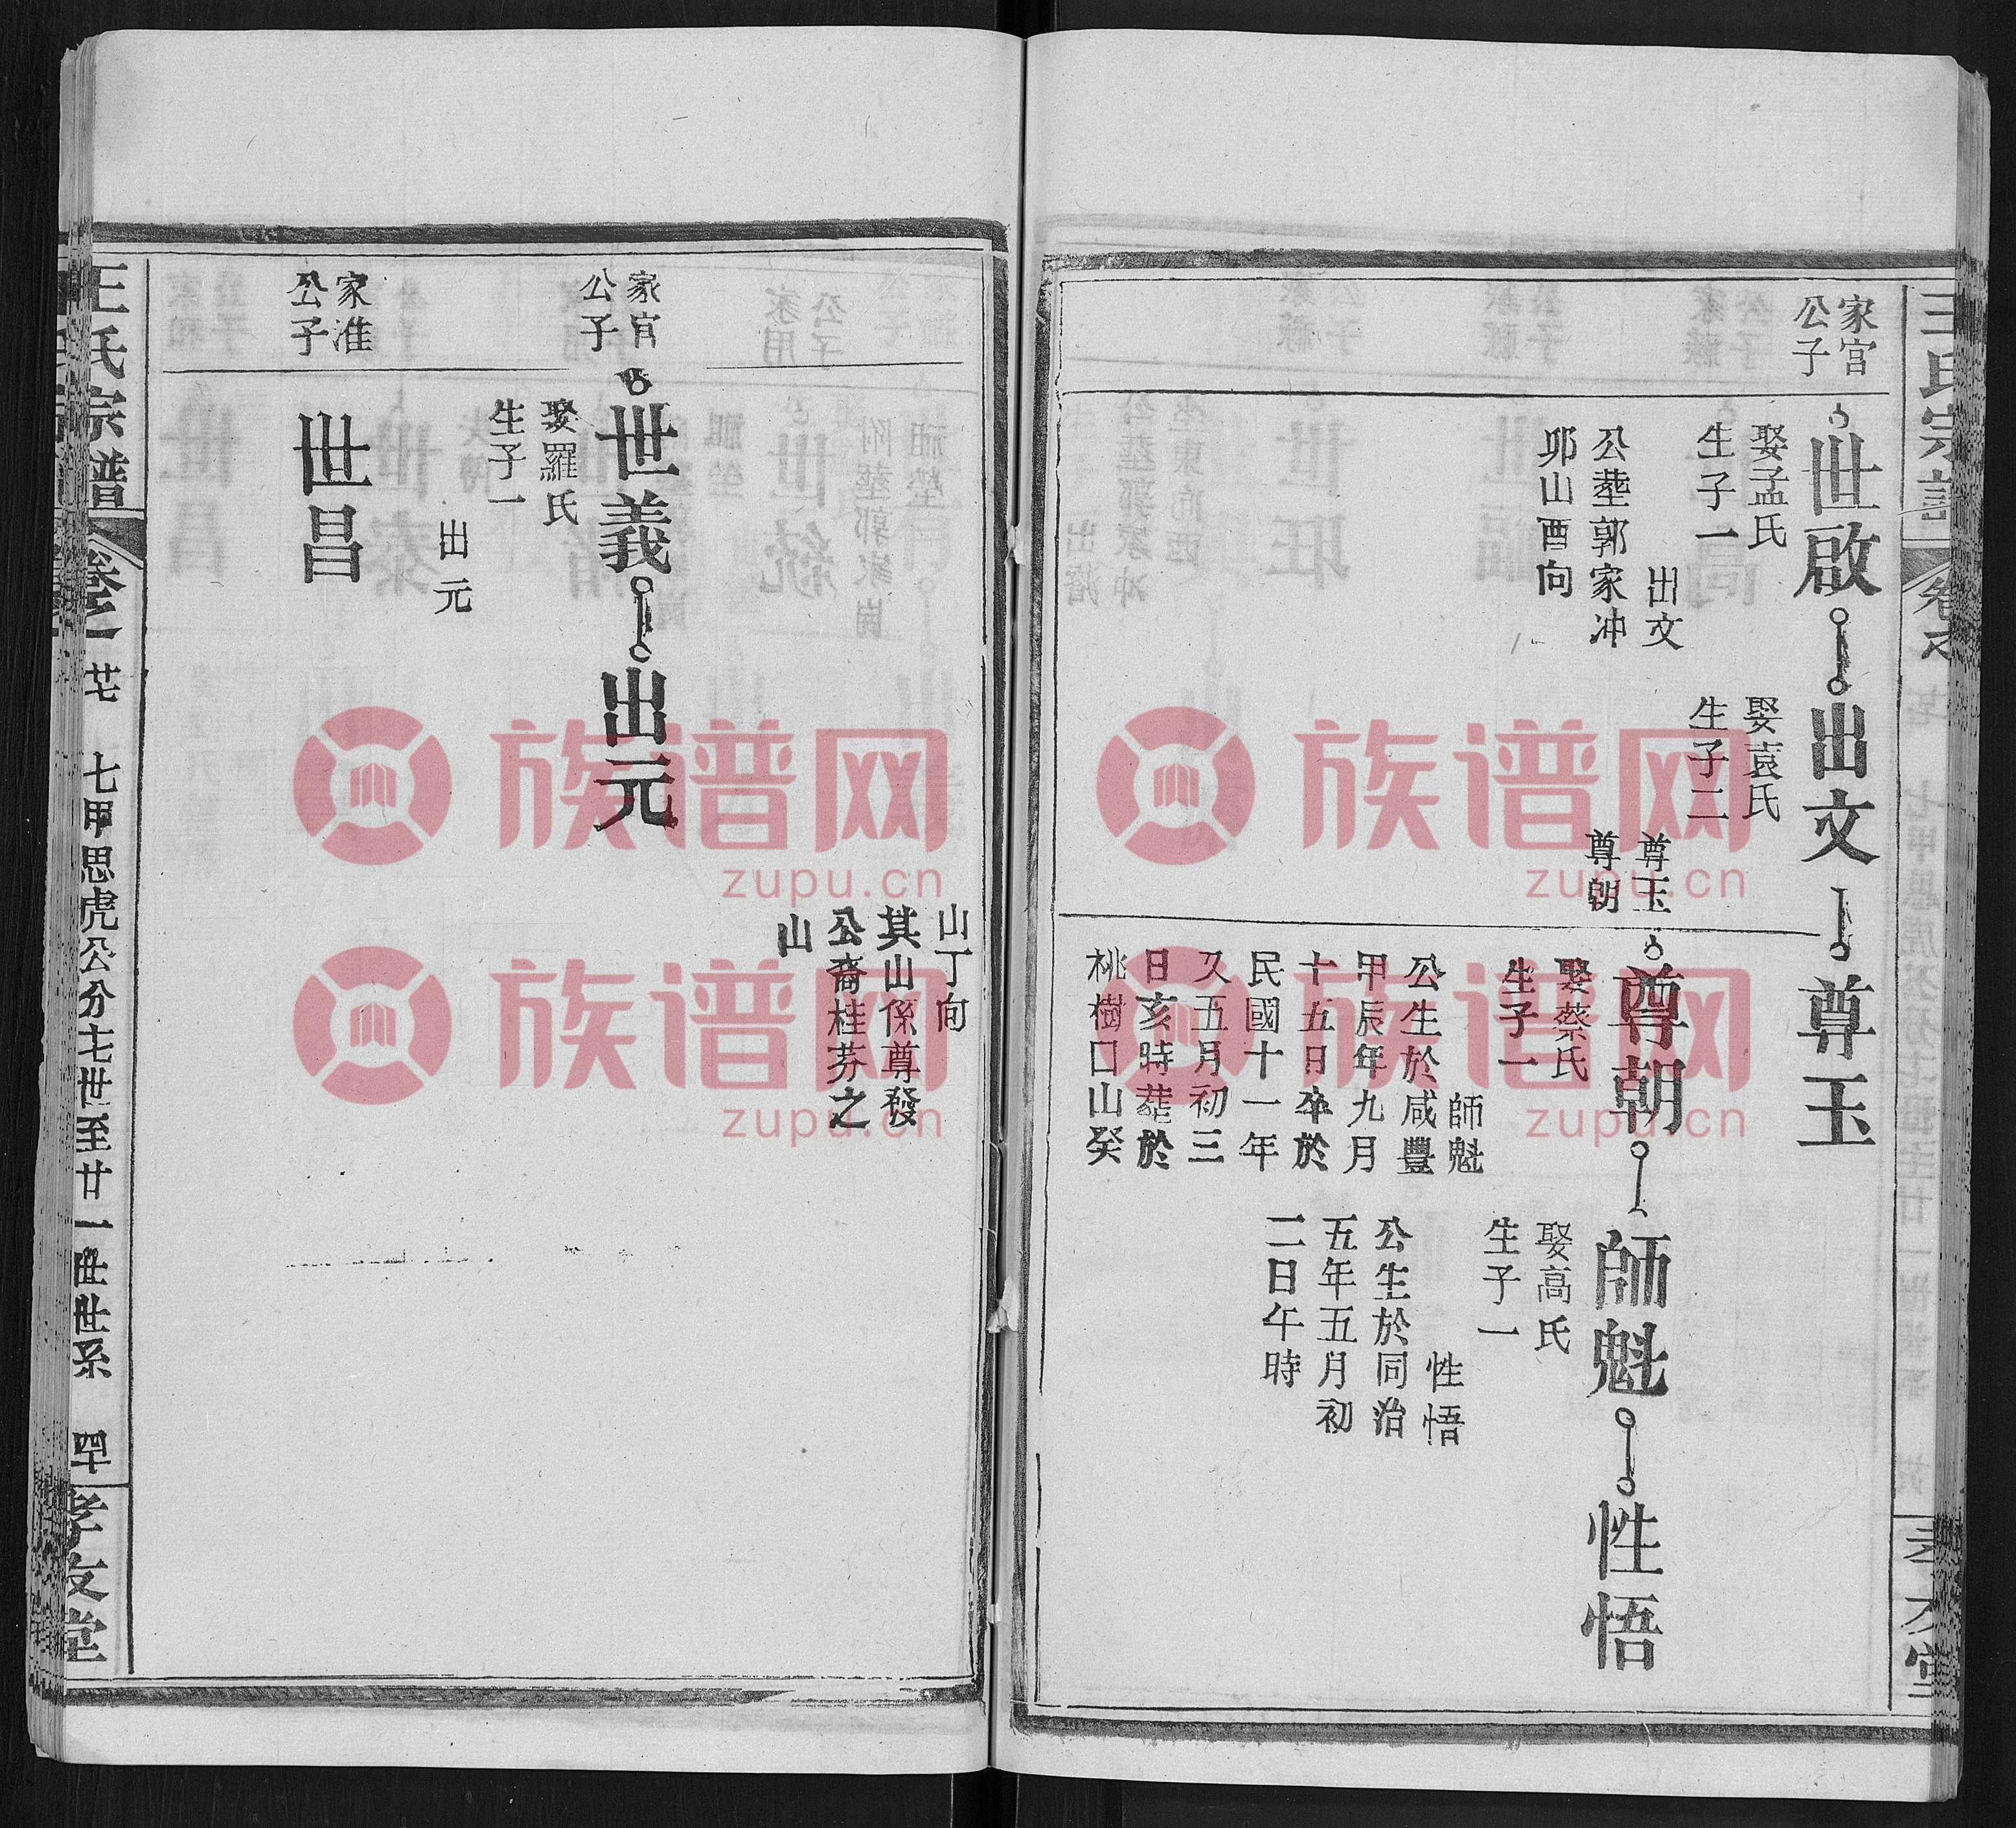 王氏宗譜
家官
公子
世啟
出文
尊玉
娶孟氏
生子一
出文
公塟郭家冲
卯山酉向
娶袁氏
生子二
尊玉
尊朝
尊朝
師魁
性悟
娶蔡氏
生子一
師魁
公生於咸豐
甲辰年九月
十五日卒於
民國十一年
又五月初三
日亥時塟於
桃樹口山癸
娶高氏
生子一
性悟
公生於同治
五年五月初
二日午時
山丁向
其山係尊發
公裔桂芬之
山
家官
公子
世義
出元
娶羅氏
生子一
出元
家准
公子
世昌
王氏宗譜
卷之一
廿七
七甲思虎公分七世至廿一世世系
四十
孝友堂
族谱网
zupu.cn
族谱网
zupu.cn
族谱网
zupu.cn
族谱网
zupu.cn